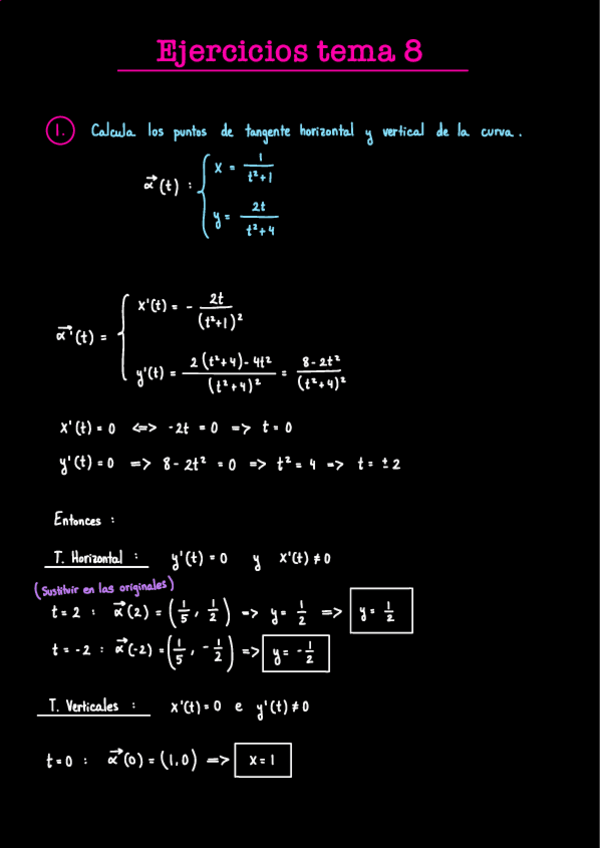 Ejercicios tema 8
1. Calcula los puntos de tangente horizontal y vertical de la curva.
α⃗(t) : { x = 1/(t²+1)
y = 2t/(t²+4)
α⃗'(t) = { x'(t) = - 2t/(t²+1)²
y'(t) = (2(t²+4) - 4t²)/(t²+4)² = (8-2t²)/(t²+4)²
x'(t) = 0 <=> -2t = 0 => t = 0
y'(t) = 0 => 8-2t² = 0 => t² = 4 => t = ±2
Entonces :
T. Horizontal : y'(t) = 0 y x'(t) ≠ 0
(Sustituir en las originales)
t = 2 : α⃗(2) = (1/5, 1/2) => y = 1/2 => y = 1/2
t = -2 : α⃗(-2) = (1/5, -1/2) => y = -1/2
T. Verticales : x'(t) = 0 e y'(t) ≠ 0
t = 0 : α⃗(0) = (1,0) => x = 1